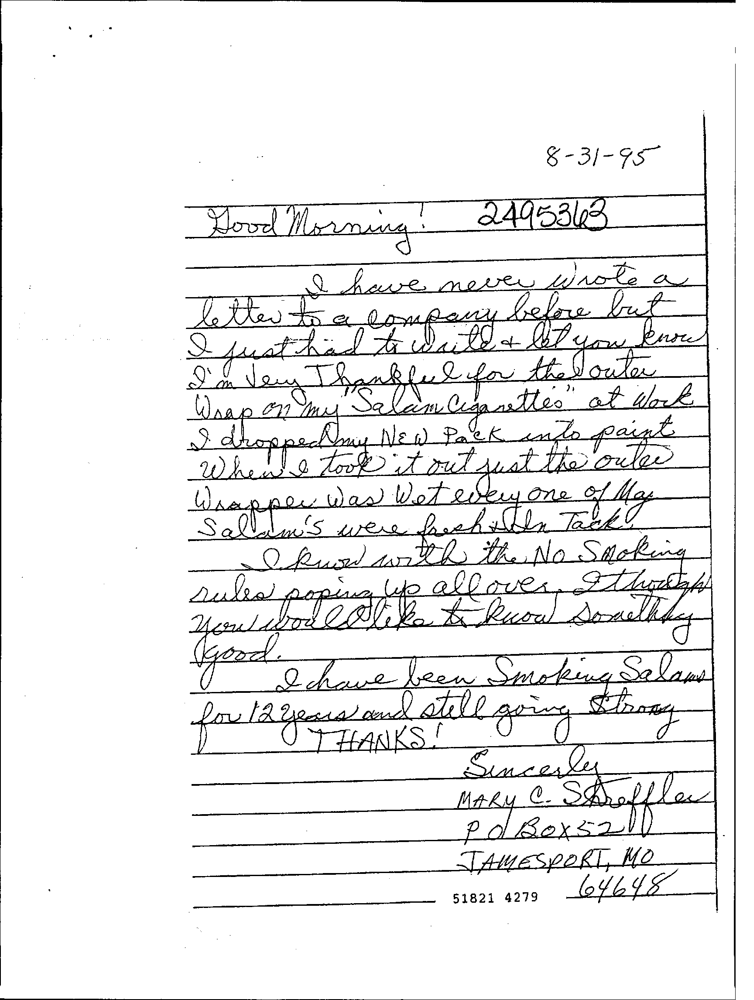 8-31-95
Good Morning! 2495363
I have never wrote a
letter to a company before but
I just had to write & let you know
I'm Very Thankful for the outer
Wrap on my "Salam Cigarettes" at Work
I dropped my NEW Pack into paint
When I took it out just the outer
Wrapper Was Wet every one of My
Salam's were fresh & In Tack.
I know with the No Smoking
rules poping up all over, I though
you would like to know something
good.
I have been Smoking Salams
for 12 years and still going Strong
THANKS!
Sincerly
MARY C. Streffler
P O Box 52
JAMESPORT, MO
64648
51821 4279